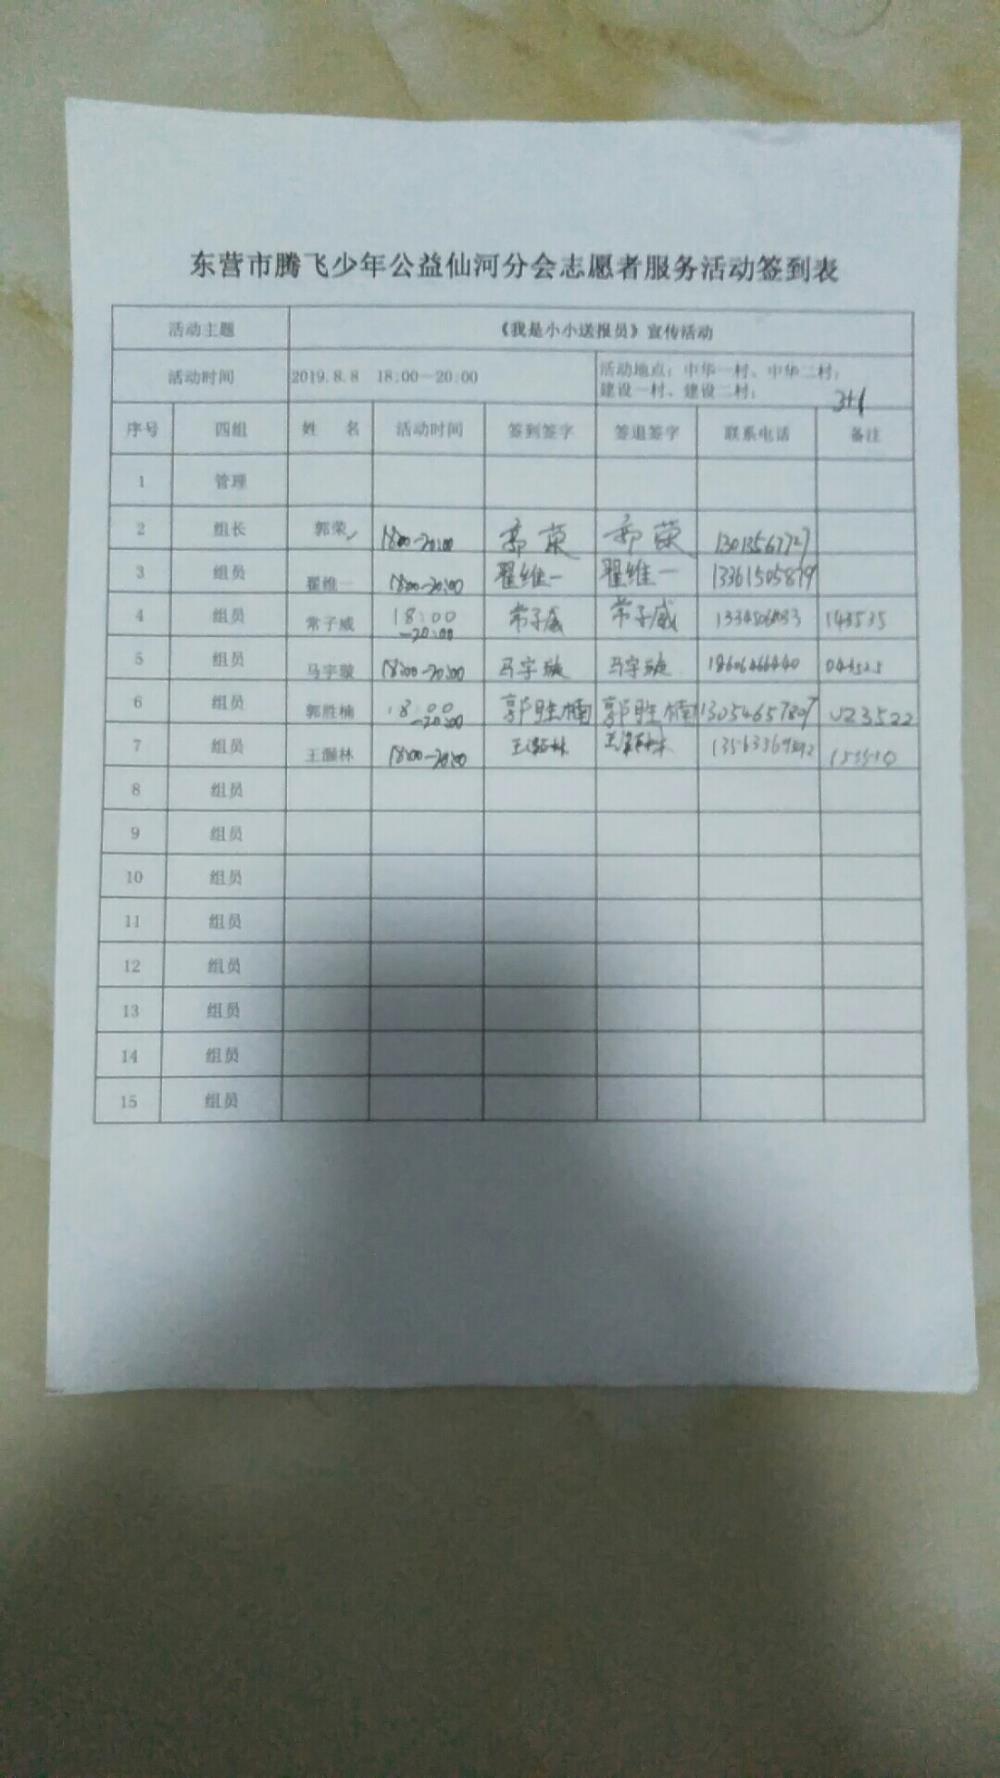 东营市腾飞少年公益仙河分会志愿者服务活动签到表
活动主题 《我是小小送报员》宣传活动
活动时间 2019.8.8 18:00—20:00 活动地点：中华一村、中华二村；
建设一村、建设二村；
3+1
序号 四组 姓 名 活动时间 签到签字 签退签字 联系电话 备注
1 管理
2 组长 郭荣 18:00-20:00 郭荣 郭荣
3 组员 翟维一 18:00-20:00 翟维一 翟维一 13361505879
4 组员 常子威 18:00-20:00 常子威 常子威 143535
5 组员 马宇璇 18:00-20:00 马宇璇 马宇璇
6 组员 郭胜楠 18:00-20:00 郭胜楠 郭胜楠 13054657807 023522
7 组员 王灏林 18:00-20:00 王灏林 王灏林
8 组员
9 组员
10 组员
11 组员
12 组员
13 组员
14 组员
15 组员